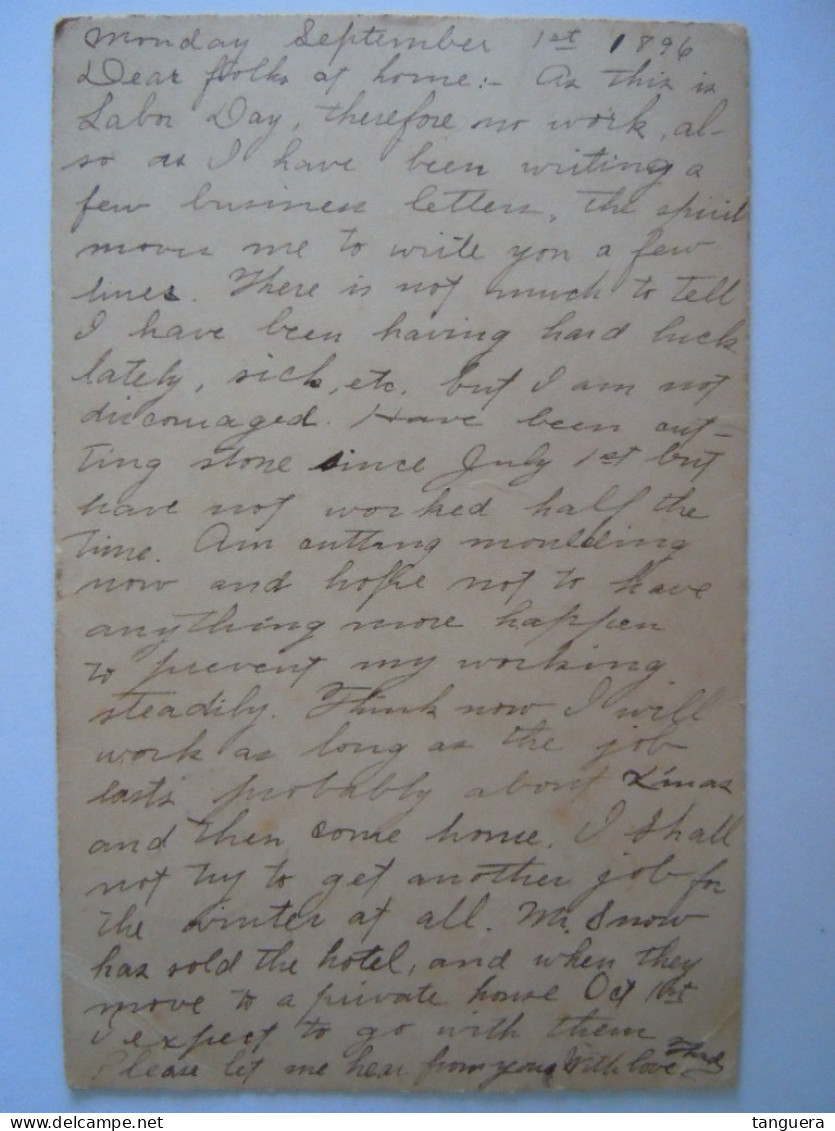 Monday September 1st 1896
Dear folks at home:- As this is
Labor Day, therefore no work, al-
so as I have been writing a
few business letters, the spirit
moves me to write you a few
lines. There is not much to tell
I have been having hard luck
lately, sick, etc. but I am not
discouraged. Have been cut-
ting stone since July 1st but
have not worked half the
time. Am cutting moulding
now and hope not to have
anything more happen
to prevent my working
steadily. Think now I will
work as long as the job
lasts probably about Xmas
and then come home. I shall
not try to get another job for
the winter at all. Mr. Snow
has sold the hotel, and when they
move to a private house Oct 1st
I expect to go with them
Please let me hear from you With love
tanguera